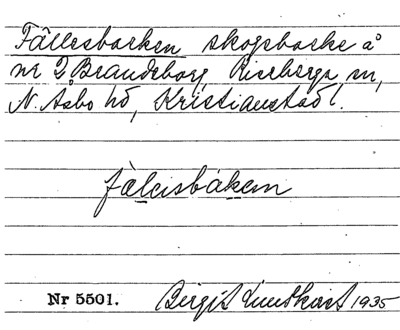 Fällesbacken skogsbacke å
nr 2 Brandeborg Riseberga sn,
N. Åsbo hd, Kristianstads l.
fàlǝsbàkǝn
Nr 5501. Birgit Lundkvist 1935